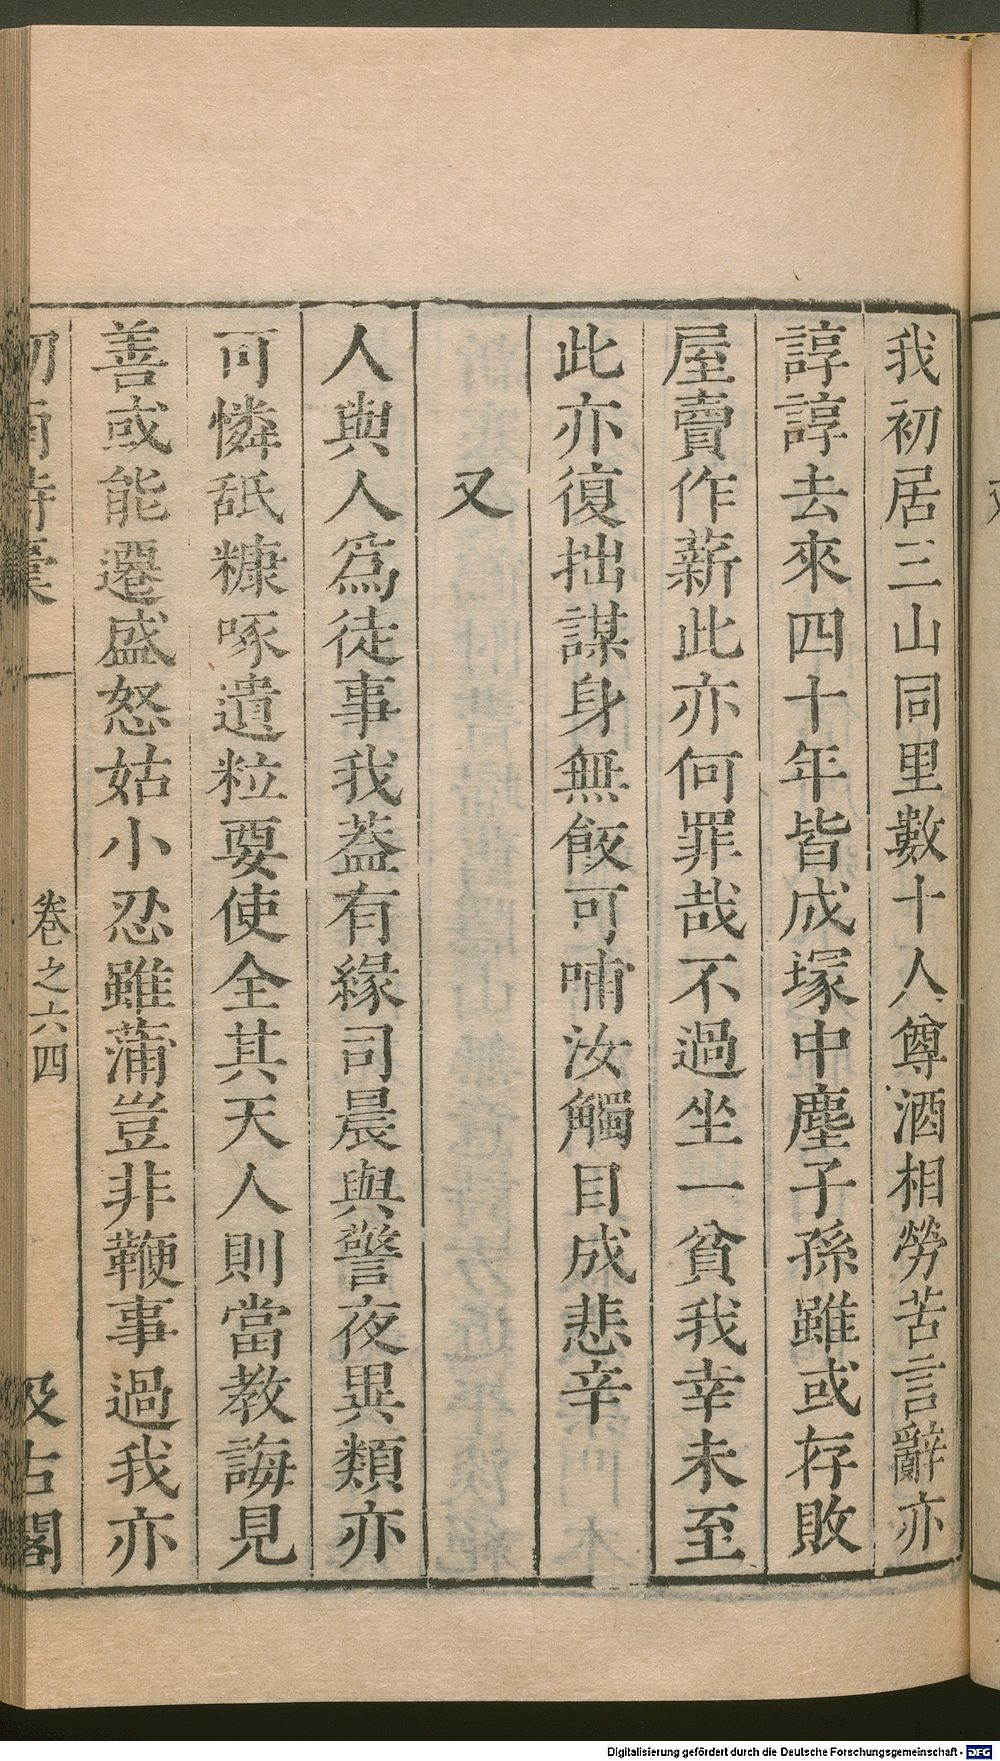 我初居三山同里數十人尊酒相勞苦言辭亦
諄諄去來四十年皆成塚中塵子孫雖或存敗
屋賣作薪此亦何罪哉不過坐一貧我幸未至
此亦復拙謀身無飯可哺汝觸目成悲辛
又
人與人爲徒事我葢有緣司晨與警夜異類亦
可憐舐糠啄遺粒要使全其天人則當教誨見
善或能遷盛怒姑小忍雖蒲豈非鞭事過我亦
卷之六四
汲古閣
Digitalisierung gefördert durch die Deutsche Forschungsgemeinschaft - DFG